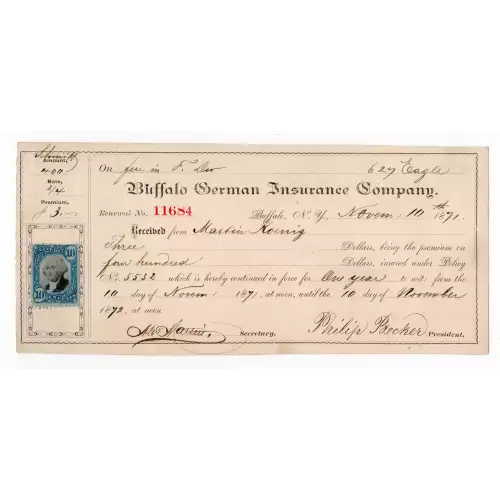 Amount,
400
Rate,
3/4
Premium,
$ 3.—
10 10
On fur in F. Dw 627 Eagle
Buffalo German Insurance Company.
Renewal No. 11684 Buffalo, N. Y. Novem: 10th 1871.
Received from Martin Koenig
Three Dollars, being the premium on
four hundred Dollars, insured under Policy
No. 5532 which is hereby continued in force for One year to wit: from the
10 day of Novem: 1871. at noon, until the 10 day of November
1872, at noon.
Secretary. Philip Becker President.